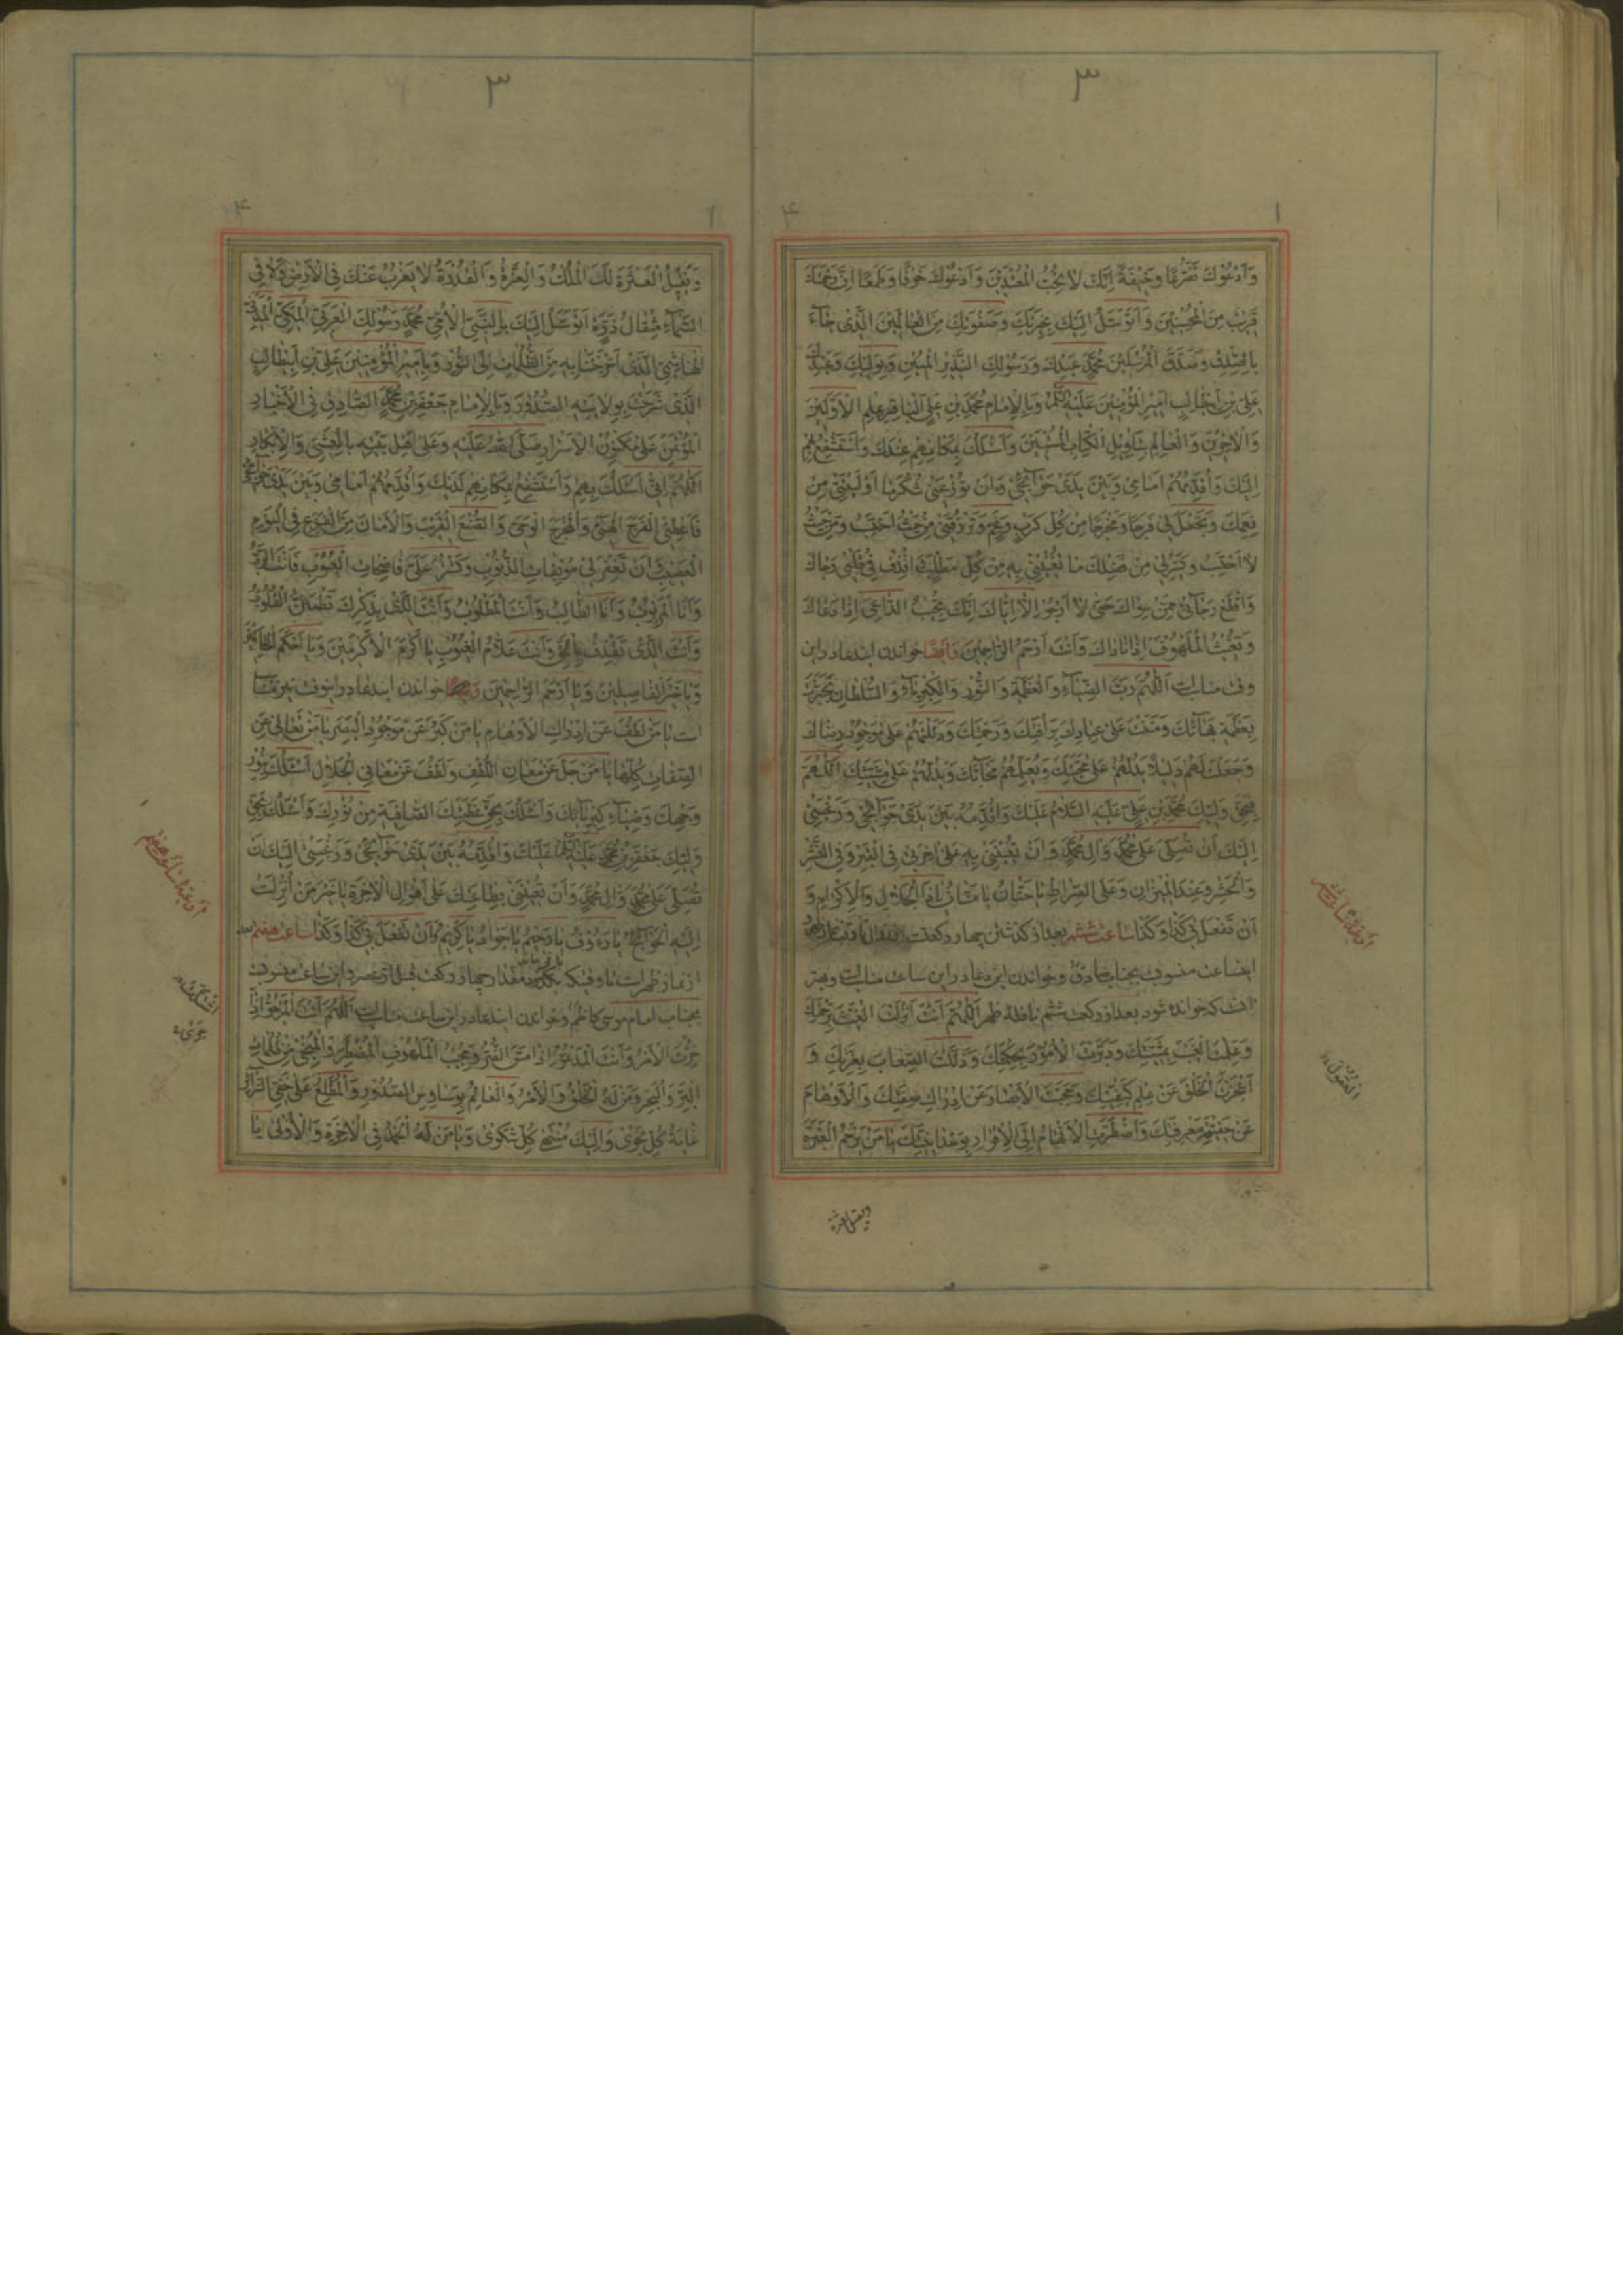 ٣
١
۴
وَأَدْعُوكَ تَضَرُّعًا وَخِيفَةً إِنَّكَ لَا تُحِبُّ الْمُعْتَدِينَ وَأَدْعُوكَ خَوْفًا وَطَمَعًا إِنَّ رَحْمَتَكَ
قَرِيبٌ مِنَ الْمُحْسِنِينَ وَأَتَوَسَّلُ إِلَيْكَ بِخِيَرَتِكَ وَصَفْوَتِكَ مِنَ الْعَالَمِينَ الَّذِي جَاءَ
بِالصِّدْقِ وَصَدَّقَ الْمُرْسَلِينَ مُحَمَّدٍ عَبْدِكَ وَرَسُولِكَ النَّذِيرِ الْمُبِينِ وَبِوَلِيِّكَ وَعَبْدِكَ
عَلِيِّ بْنِ أَبِيطَالِبٍ أَمِيرِ الْمُؤْمِنِينَ عَلَيْهِ السَّلَامُ وَبِالْإِمَامِ مُحَمَّدِ بْنِ عَلِيٍّ الْبَاقِرِ عِلْمِ الْأَوَّلِينَ
وَالْآخِرِينَ وَالْعَالِمِ بِتَأْوِيلِ الْكِتَابِ الْمُسْتَبِينِ وَأَسْئَلُكَ بِمَكَانِهِمْ عِنْدَكَ وَأَسْتَشْفِعُ بِهِمْ
إِلَيْكَ وَأُقَدِّمُهُمْ أَمَامِي وَبَيْنَ يَدَيْ حَوَائِجِي وَأَنْ تُوزِعَنِي شُكْرَ مَا أَوْلَيْتَنِي مِنْ
نِعَمِكَ وَتَجْعَلَ لِي فَرَجًا وَمَخْرَجًا مِنْ كُلِّ كَرْبٍ وَغَمٍّ وَتَرْزُقَنِي مِنْ حَيْثُ أَحْتَسِبُ وَمِنْ حَيْثُ
لَا أَحْتَسِبُ وَيَسِّرْ لِي مِنْ فَضْلِكَ مَا تُغْنِينِي بِهِ مِنْ كُلِّ مَطْلَبٍ اقْذِفْ فِي قَلْبِي رَجَاكَ
وَاقْطَعْ رَجَائِي عَمَّنْ سِوَاكَ حَتَّى لَا أَرْجُوَ إِلَّا إِيَّاكَ إِنَّكَ تُجِيبُ الدَّاعِيَ إِذَا دَعَاكَ
وَتُغِيثُ الْمَلْهُوفَ إِذَا نَادَاكَ وَأَنْتَ أَرْحَمُ الرَّاحِمِينَ وَأيضًا خواندن ایندعا در این
وقت مناسبست اَللّٰهُمَّ رَبَّ الضِّيَاءِ وَالْعَظَمَةِ وَالنُّورِ وَالْكِبْرِيَاءِ وَالسُّلْطَانِ تَجَبَّرْتَ
بِعَظَمَةِ بَهَائِكَ وَمَنَنْتَ عَلَى عِبَادِكَ بِرَأْفَتِكَ وَرَحْمَتِكَ وَدَلَلْتَهُمْ عَلَى مَوْجُودِ رِضَاكَ
وَجَعَلْتَ لَهُمْ دَلِيلًا يَدُلُّهُمْ عَلَى مَحَبَّتِكَ وَيُعَلِّمُهُمْ مَحَابَّكَ وَيَدُلُّهُمْ عَلَى مَشِيَّتِكَ اللّٰهُمَّ
بِحَقِّ وَلِيِّكَ مُحَمَّدِ بْنِ عَلِيٍّ عَلَيْهِ السَّلَامُ عَلَيْكَ وَأُقَدِّمُهُ بَيْنَ يَدَيْ حَوَائِجِي وَرَغْبَتِي
إِلَيْكَ أَنْ تُصَلِّيَ عَلَى مُحَمَّدٍ وَآلِ مُحَمَّدٍ وَأَنْ تُعِينَنِي بِهِ عَلَى آخِرَتِي فِي الْقَبْرِ وَفِي النَّشْرِ
وَالْحَشْرِ وَعِنْدَ الْمِيزَانِ وَعَلَى الصِّرَاطِ يَا حَنَّانُ يَا مَنَّانُ يَا ذَا الْجَلَالِ وَالْإِكْرَامِ وَ
أَنْ تَفْعَلَ بِي كَذَا وَكَذَا ساعت ششم بعد از گذشتن چهار رکعت
اینساعت منسوب بجناب صادق و خواندن این دعا در این ساعت مناسبست و بهتر
انست که خوانده شود بعد از رکعت ششم نافلهٔ ظهر اَللّٰهُمَّ أَنْتَ أَنْزَلْتَ الْغَيْثَ بِرَحْمَتِكَ
وَعَلِمْتَ الْغَيْبَ بِمَشِيَّتِكَ وَدَبَّرْتَ الْأُمُورَ بِحِكْمَتِكَ وَذَلَّلْتَ الصِّعَابَ بِعِزَّتِكَ وَ
أَعْجَزْتَ الْخَلْقَ عَنْ عِلْمِ كَيْفِيَّتِكَ وَحَجَبْتَ الْأَبْصَارَ عَنْ إِدْرَاكِ صِفَتِكَ وَالْأَوْهَامَ
عَنْ حَقِيقَةِ مَعْرِفَتِكَ وَاضْطَرَرْتَ الْأَفْهَامَ إِلَى الْإِقْرَارِ بِوَحْدَانِيَّتِكَ يَا مَنْ يَرْحَمُ الْعَبْرَةَ
ادعیهٔ ساعت ششم
العقول
ویقیل العثرة
٣
١
۴
وَيُقِيلُ الْعَثْرَةَ لَكَ الْمُلْكُ وَالْعِزَّةُ وَالْقُدْرَةُ لَا يَعْزُبُ عَنْكَ فِي الْأَرْضِ وَلَا فِي
السَّمَاءِ مِثْقَالُ ذَرَّةٍ أَتَوَسَّلُ إِلَيْكَ بِالنَّبِيِّ الْأُمِّيِّ مُحَمَّدٍ رَسُولِكَ الْعَرَبِيِّ الْمَكِّيِّ الْمَدَنِيِّ
الْهَاشِمِيِّ الَّذِي أَخْرَجْتَنَا بِهِ مِنَ الظُّلُمَاتِ إِلَى النُّورِ وَبِأَمِيرِ الْمُؤْمِنِينَ عَلِيِّ بْنِ أَبِيطَالِبٍ
الَّذِي شَرَحْتَ بِوِلَايَتِهِ الصُّدُورَ وَبِالْإِمَامِ جَعْفَرِ بْنِ مُحَمَّدٍ الصَّادِقِ فِي الْأَخْبَارِ
الْمُؤْتَمَنِ عَلَى مَكْنُونِ الْأَسْرَارِ صَلَّى اللهُ عَلَيْهِ وَعَلَى أَهْلِ بَيْتِهِ بِالْعَشِيِّ وَالْإِبْكَارِ
اَللّٰهُمَّ إِنِّي أَسْئَلُكَ بِهِمْ وَأَسْتَشْفِعُ بِمَكَانِهِمْ لَدَيْكَ وَأُقَدِّمُهُمْ أَمَامِي وَبَيْنَ يَدَيْ حَوَائِجِي
فَأَعْطِنِي الْفَرَجَ الْهَنِيءَ وَالْمَخْرَجَ الْوَحِيَّ وَالصُّنْعَ الْقَرِيبَ وَالْأَمَانَ مِنَ الْفَزَعِ فِي الْيَوْمِ
الْعَصِيبِ أَنْ تَغْفِرَ لِي مُوبِقَاتِ الذُّنُوبِ وَتَسْتُرَ عَلَيَّ فَاضِحَاتِ الْعُيُوبِ فَأَنْتَ الرَّبُّ
وَأَنَا الْمَرْبُوبُ وَأَنَا الطَّالِبُ وَأَنْتَ الْمَطْلُوبُ وَأَنْتَ الَّذِي بِذِكْرِكَ تَطْمَئِنُّ الْقُلُوبُ
وَأَنْتَ الَّذِي تَقْذِفُ بِالْحَقِّ وَأَنْتَ عَلَّامُ الْغُيُوبِ يَا أَكْرَمَ الْأَكْرَمِينَ وَيَا أَحْكَمَ الْحَاكِمِينَ
وَيَا خَيْرَ الْفَاصِلِينَ وَيَا أَرْحَمَ الرَّاحِمِينَ خواندن ایندعا در اینوقت نیز مناسب
است يَا مَنْ لَطُفَ عَنْ إِدْرَاكِ الْأَوْهَامِ يَا مَنْ كَبُرَ عَنْ مَوْجُودِ الْبَصَرِ يَا مَنْ تَعَالَى عَنِ
الصِّفَاتِ كُلِّهَا يَا مَنْ جَلَّ عَنْ مَعَانِي اللُّطْفِ وَلَطُفَ عَنْ مَعَانِي الْجَلَالِ أَسْئَلُكَ بِنُورِ
وَجْهِكَ وَضِيَاءِ كِبْرِيَائِكَ وَأَسْئَلُكَ بِحَقِّ عَظَمَتِكَ الصَّافِيَةِ مِنْ نُورِكَ وَأَسْئَلُكَ بِحَقِّ
وَلِيِّكَ جَعْفَرِ بْنِ مُحَمَّدٍ عَلَيْهِ السَّلَامُ عَلَيْكَ وَأُقَدِّمُهُ بَيْنَ يَدَيْ حَوَائِجِي وَرَغْبَتِي إِلَيْكَ أَنْ
تُصَلِّيَ عَلَى مُحَمَّدٍ وَآلِ مُحَمَّدٍ وَأَنْ تُعِينَنِي بِطَاعَتِكَ عَلَى أَهْوَالِ الْآخِرَةِ يَا خَيْرَ مَنْ أُنْزِلَتْ
إِلَيْهِ الْحَوَائِجُ يَا رَءُوفُ يَا رَحِيمُ يَا جَوَادُ يَا كَرِيمُ وَأَنْ تَفْعَلَ بِي كَذَا وَكَذَا ساعت هفتم بعد
از نماز ظهر است تا وقتیکه بگذرد مقدار چهار رکعت قبل از عصر و این ساعت منسوب
بجناب امام موسی کاظم و خواندن ایندعا در این ساعت مناسبست اَللّٰهُمَّ أَنْتَ الْمَرْجُوُّ إِذَا
حَزَبَ الْأَمْرُ وَأَنْتَ الْمَدْعُوُّ إِذَا مَسَّ الضُّرُّ وَمُجِيبُ الْمَلْهُوفِ الْمُضْطَرِّ وَالْمُنْجِي مِنْ ظُلُمَاتِ
الْبَرِّ وَالْبَحْرِ وَمَنْ لَهُ الْخَلْقُ وَالْأَمْرُ وَالْعَالِمُ بِوَسَاوِسِ الصُّدُورِ وَالْمُطَّلِعُ عَلَى خَفِيِّ السَّرَائِرِ
غَايَةُ كُلِّ نَجْوَى وَإِلَيْكَ مُنْتَهَى كُلِّ شَكْوَى وَيَا مَنْ لَهُ الْحَمْدُ فِي الْآخِرَةِ وَالْأُولَى يَا
ادعیهٔ ساعت هفتم